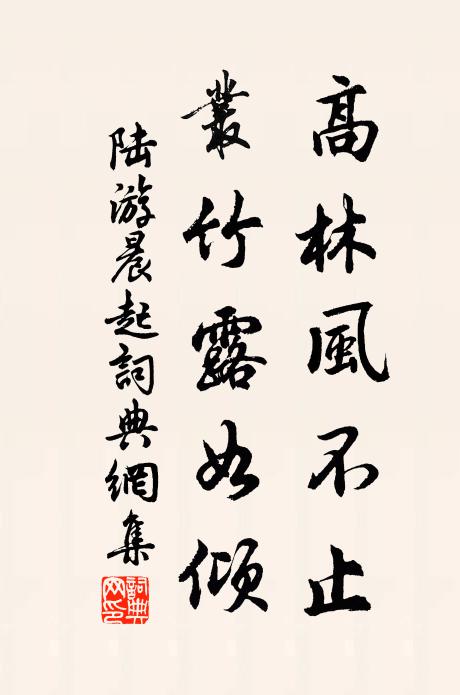 高林風不止
叢竹露如傾
陆游晨起詞典網集
詞典
网印